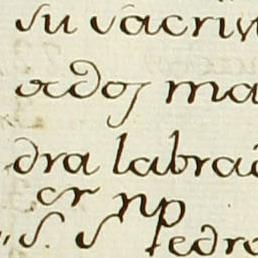 su sacrin
ados ma
dra labrad
cr np
S. S Pedro